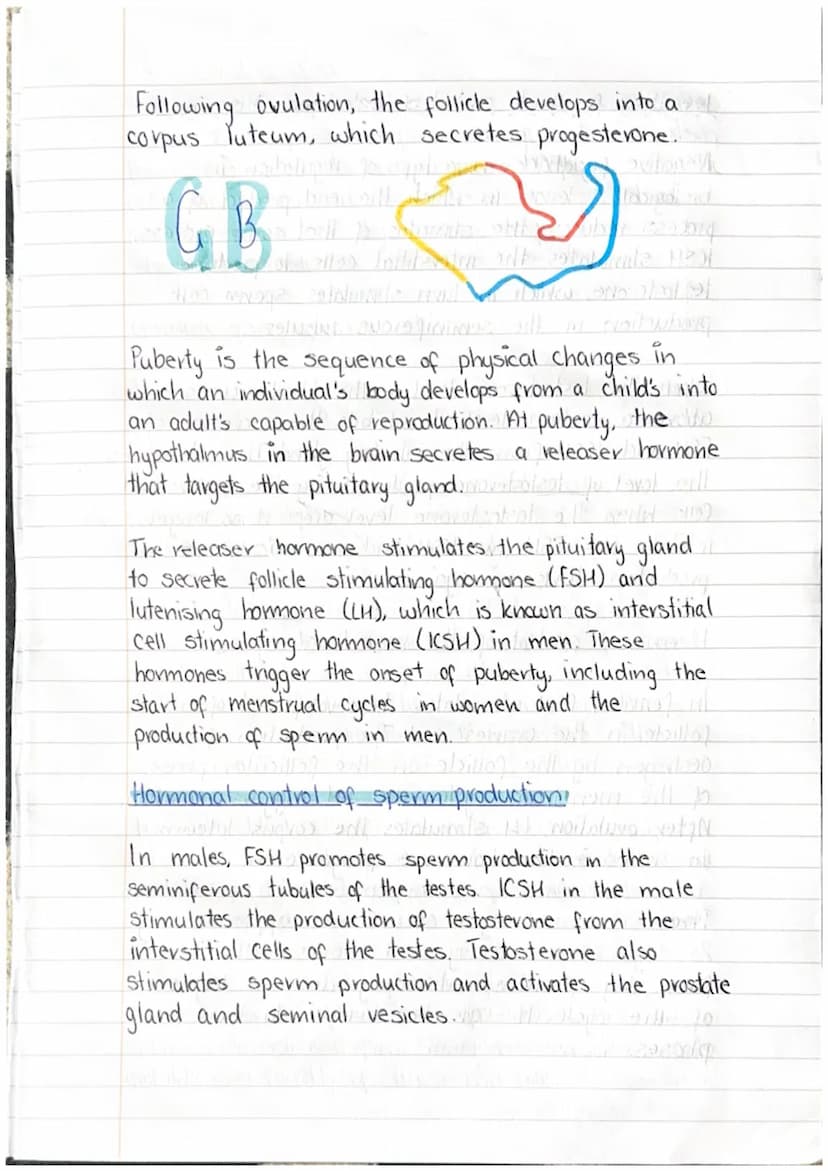 Following ovulation, the follicle develops into a
corpus luteum, which secretes progesterone.
G B
Puberty is the sequence of physical changes in
which an individual's body develops from a child's into
an adult's capable of reproduction. At puberty, the
hypothalmus in the brain secretes a releaser hormone
that targets the pituitary gland.
The releaser hormone stimulates the pituitary gland
to secrete follicle stimulating hormone (FSH) and
lutenising hormone (LH), which is known as interstitial
cell stimulating hormone (ICSH) in men. These
hormones trigger the onset of puberty, including the
start of menstrual cycles in women and the
production of sperm in men.
Hormonal control of sperm production
In males, FSH promotes sperm production in the
seminiferous tubules of the testes. ICSH in the male
stimulates the production of testosterone from the
interstitial cells of the testes. Testosterone also
stimulates sperm production and activates the prostate
gland and seminal vesicles.